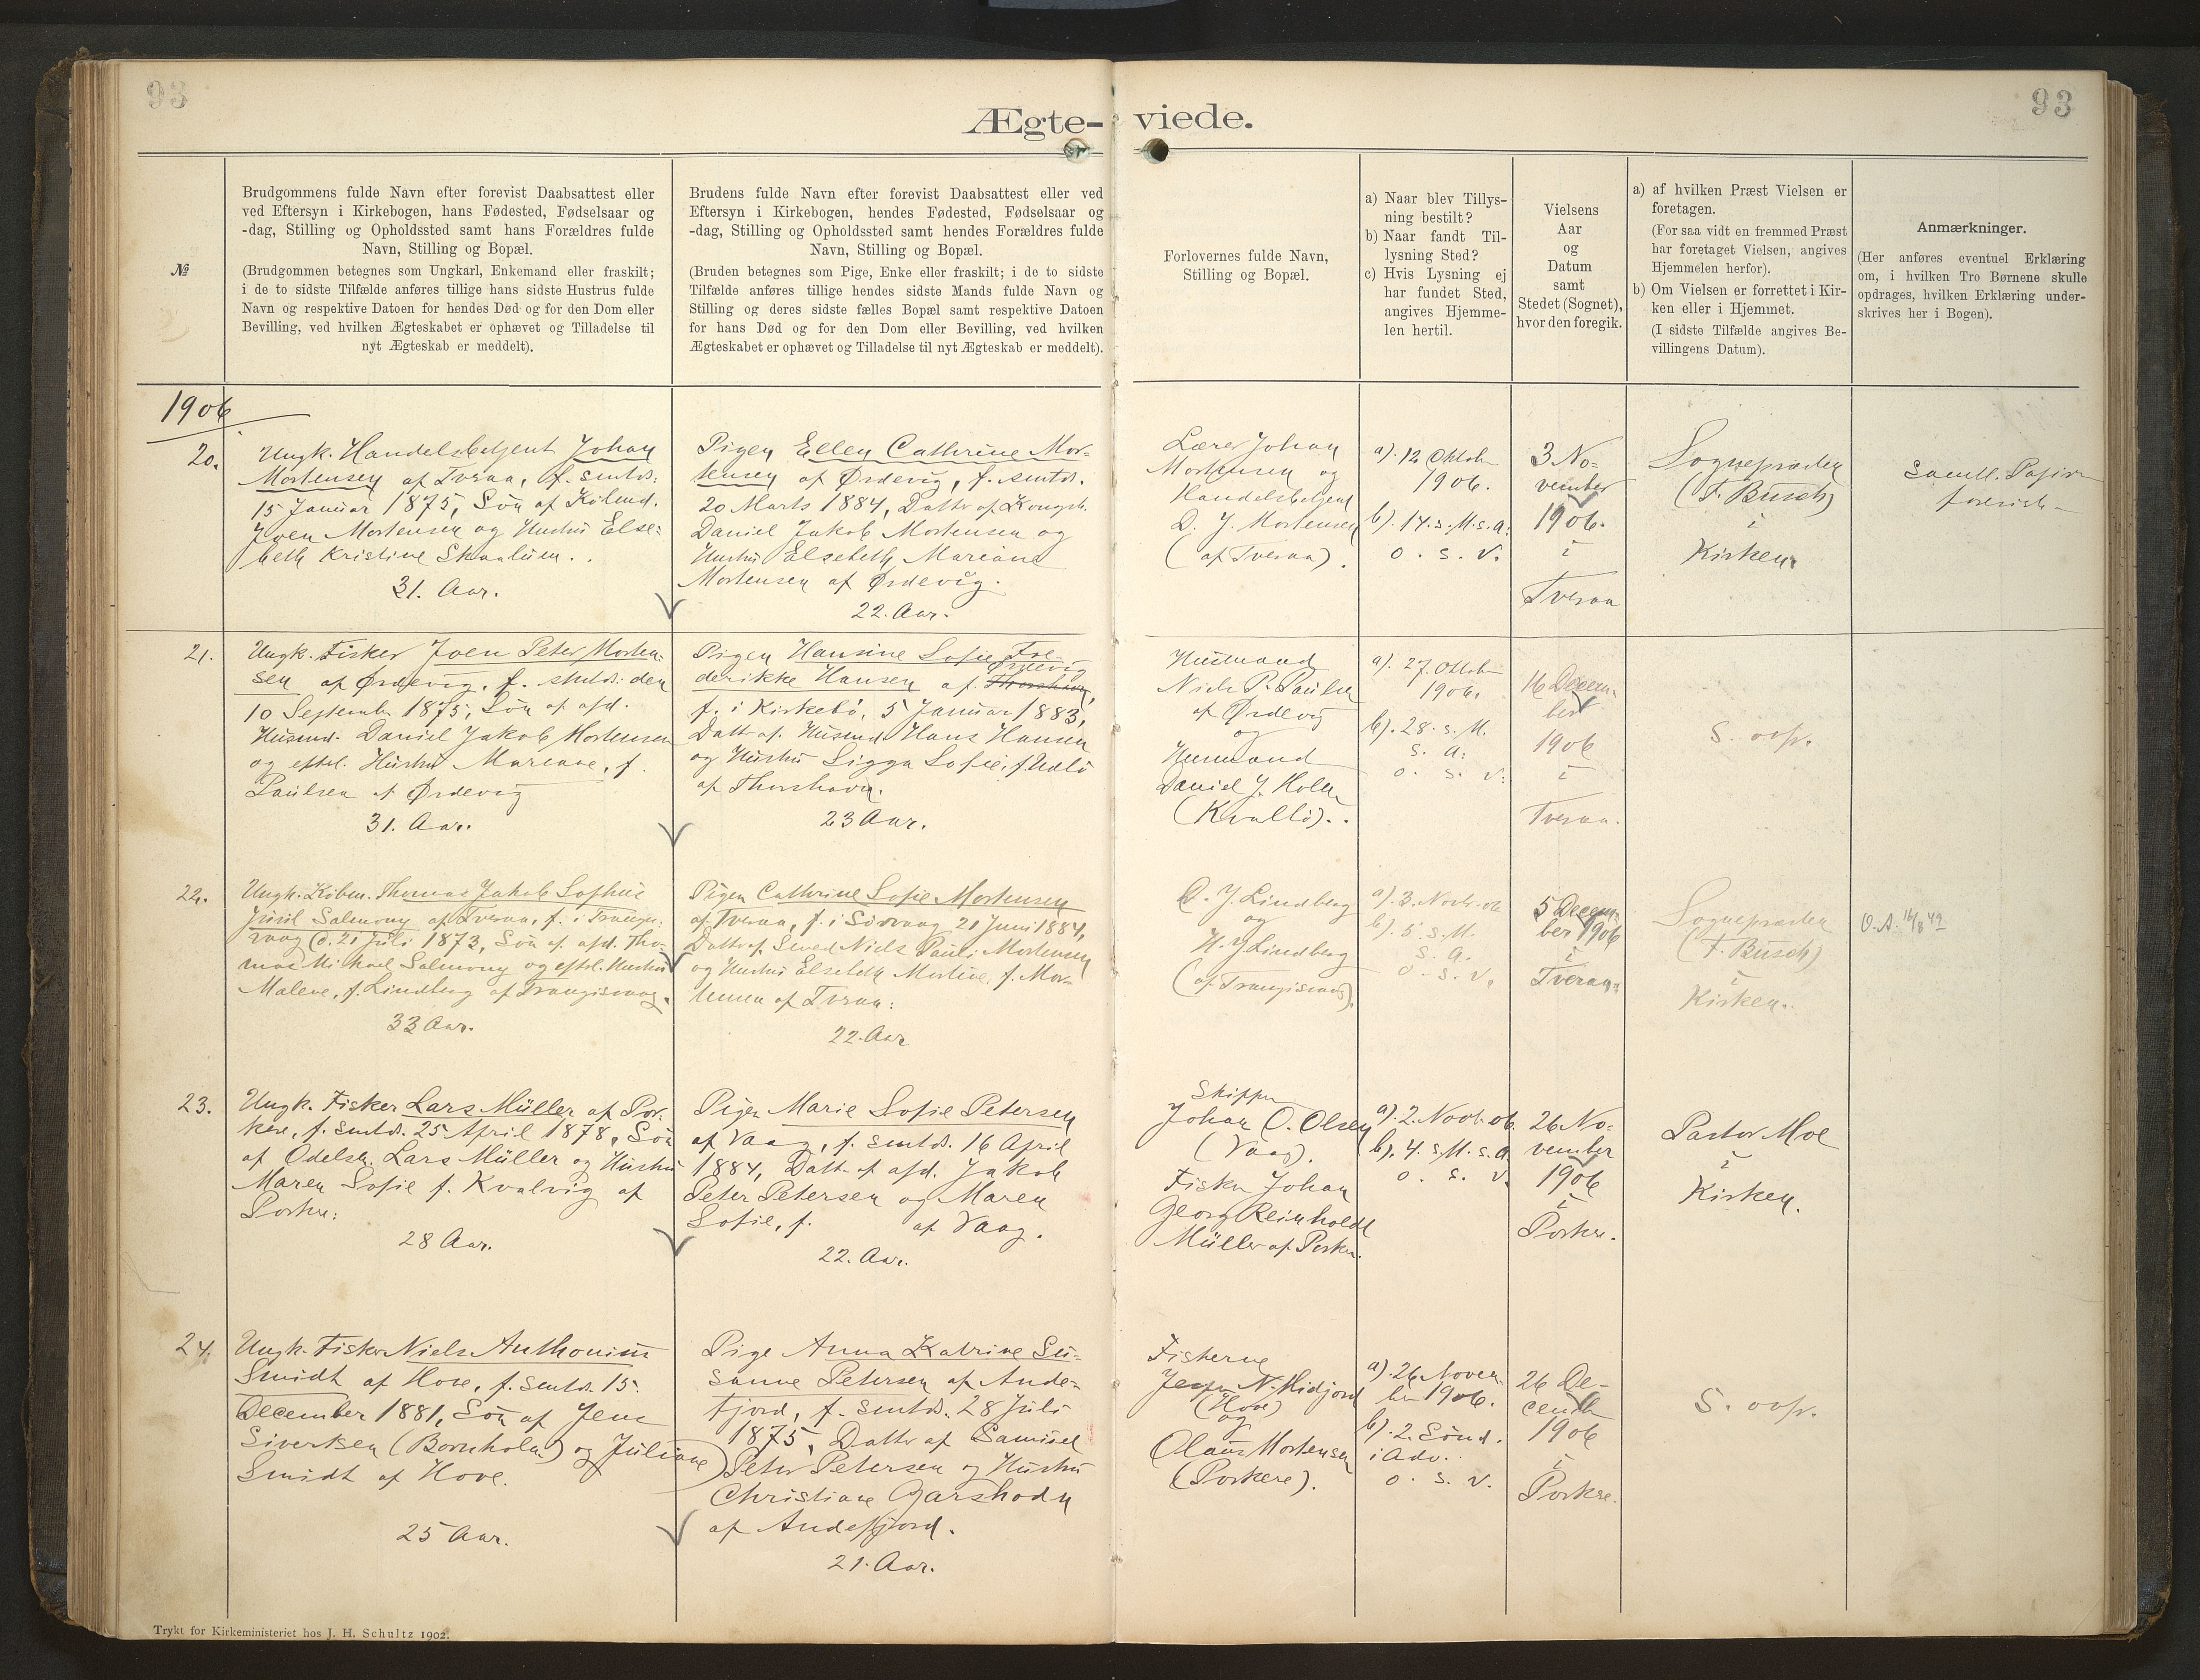 93
93
Ægte- viede.
№
Brudgommens fulde Navn efter forevist Daabsattest eller
ved Eftersyn i Kirkebogen, hans Fødested, Fødselsaar og
-dag, Stilling og Opholdssted samt hans Forældres fulde
Navn, Stilling og Bopæl.
(Brudgommen betegnes som Ungkarl, Enkemand eller fraskilt;
i de to sidste Tilfælde anføres tillige hans sidste Hustrus fulde
Navn og respektive Datoen for hendes Død og for den Dom eller
Bevilling, ved hvilken Ægteskabet er ophævet og Tilladelse til
nyt Ægteskab er meddelt).
Brudens fulde Navn efter forevist Daabsattest eller ved
Eftersyn i Kirkebogen, hendes Fødested, Fødselsaar og
-dag, Stilling og Opholdssted samt hendes Forældres fulde
Navn, Stilling og Bopæl.
(Bruden betegnes som Pige, Enke eller fraskilt; i de to sidste
Tilfælde anføres tillige hendes sidste Mands fulde Navn og
Stilling og deres sidste fælles Bopæl samt respektive Datoen
for hans Død og for den Dom eller Bevilling, ved hvilken
Ægteskabet er ophævet og Tilladelse til nyt Ægteskab er meddelt).
Forlovernes fulde Navn,
Stilling og Bopæl.
a) Naar blev Tillys-
ning bestilt?
b) Naar fandt Til-
lysning Sted?
c) Hvis Lysning ej
har fundet Sted,
angives Hjemme-
len hertil.
Vielsens
Aar
og
Datum
samt
Stedet (Sognet),
hvor den foregik.
a) af hvilken Præst Vielsen er
foretagen.
(For saa vidt en fremmed Præst
har foretaget Vielsen, angives
Hjemmelen herfor).
b) Om Vielsen er forrettet i Kir-
ken eller i Hjemmet.
(I sidste Tilfælde angives Be-
villingens Datum).
Anmærkninger.
(Her anføres eventuel Erklæring
om, i hvilken Tro Børnene skulle
opdrages, hvilken Erklæring under-
skrives her i Bogen).
1906
20.
Ungk. Handelsbetjent Johan
Mortensen af Tveraa, f. smtds.
15 Januar 1875, Søn af Købmd.
Joen Mortensen og Hustru Else-
beth Kristine Skaalum.
31. Aar.
Pigen Ellen Cathrine Mor-
tensen af Ørdevig, f. smtds.
20 Marts 1884, Datter af Kongsb.
Daniel Jakob Mortensen og
Hustru Elsebeth Mariane
Mortensen af Ørdevig.
22. Aar.
Lærer Johan
Mortensen og
Handelsbetjent
D. J. Mortensen
(af Tveraa).
a). 12 Oktob
1906.
b). 14. s. M. s. a.
o. s. v.
3 No-
vember
1906.
i
Tveraa
Sognepræsten
(F. Busch)
i
Kirken.
21.
Ungk. Fisker Joen Peter Morten-
sen af Ørdevig, f. smtds. den
10 September 1875, Søn af afd.
Husmd. Daniel Jakob Mortensen
og efterl. Hustru Mariane, f.
Paulsen af Ørdevig
31. Aar.
Pigen Hansine Sofie Fre-
Ørdevig
derikke Hansen af Thorshavn,
f. i Kirkebø, 5 Januar 1883,
Datt. af Husmd Hans Hansen
og Hustru Sigga Sofie, f.
af Thorshavn.
23 Aar.
Husmand
Niels P. Paulsen
af Ørdevig
og
Husmand
Daniel J. Holm
(Kvalbø).
a). 27. Oktob
1906.
b). 28. s. M.
s. a.
o. s. v.
16 Decem-
ber
1906
i
Tveraa.
S. ovfr.
22.
Ungk. Købm. Thomas Jakob Sophus
Juul Salmony af Tveraa, f. i Trangis-
vaag d. 21 Juli 1873, Søn af afd. Tho-
mas Michael Salmony og efterl. Hustru
Malene, f. Lindberg af Trangisvaag.
33 Aar.
Pigen Cathrine Sofie Mortensen
af Tveraa, f. i Sørvaag 21 Juni 1884,
Datt. af Smed Niels Pauli Mortensen
og Hustru Elsebeth Mortine, f. Mor-
tensen af Tveraa.
22. Aar
J. Lindberg
og
H. J. Lindberg
(af Trangisvaag).
a). 3. Novb. 06
b). 5 s. M.
s. a.
o. s. v.
5 Decem-
ber 1906
i
Tveraa.
Sognepræsten
(F. Busch)
i
Kirken.
23.
Ungk. Fisker Lars Müller af Por-
kere, f. smtds. 25 April 1878, Søn
af Odelsb. Lars Müller og Hustru
Maren Sofie f. Kvalvig af
Porkere.
28 Aar.
Pigen Marie Sofie Petersen
af Vaag, f. smtds. 16 April
1884, Datt. af afd. Jakob
Peter Petersen og Maren
Sofie, f. af Vaag.
22. Aar.
Skipper
Johan O. Olsen
(Vaag).
Fisker Johan
Georg Reinholdt
Müller af Porkere.
a). 2. Novb. 06.
b). 4. s. M. s. a.
o. s. v.
26 No-
vember
1906
i
Porkere.
Pastor Moe
i
Kirken.
24.
Ungk. Fisker Niels Anthonius
Smidt af Hove, f. smtds. 15.
December 1881, Søn af Jens
Siversen (Bornholm) og Juliane
Smidt af Hove.
25 Aar.
Pige Anna Katrine Su-
sanne Petersen af Ande-
fjord, f. smtds. 28 Juli
1875, Datter af Samuel
Peter Petersen og Hustru
Christiane Garshodn
af Andefjord.
21. Aar.
Fiskerne
N. Midjord
(Hove)
og
Olaus Mortensen
(Porkere).
a). 26 Novem-
ber 1906.
b). 2. Sønd.
i Adv.
o. s. v.
26 De-
cember
1906
i
Porkere.
S. ovfr.
Trykt for Kirkeministeriet hos J. H. Schultz 1902.